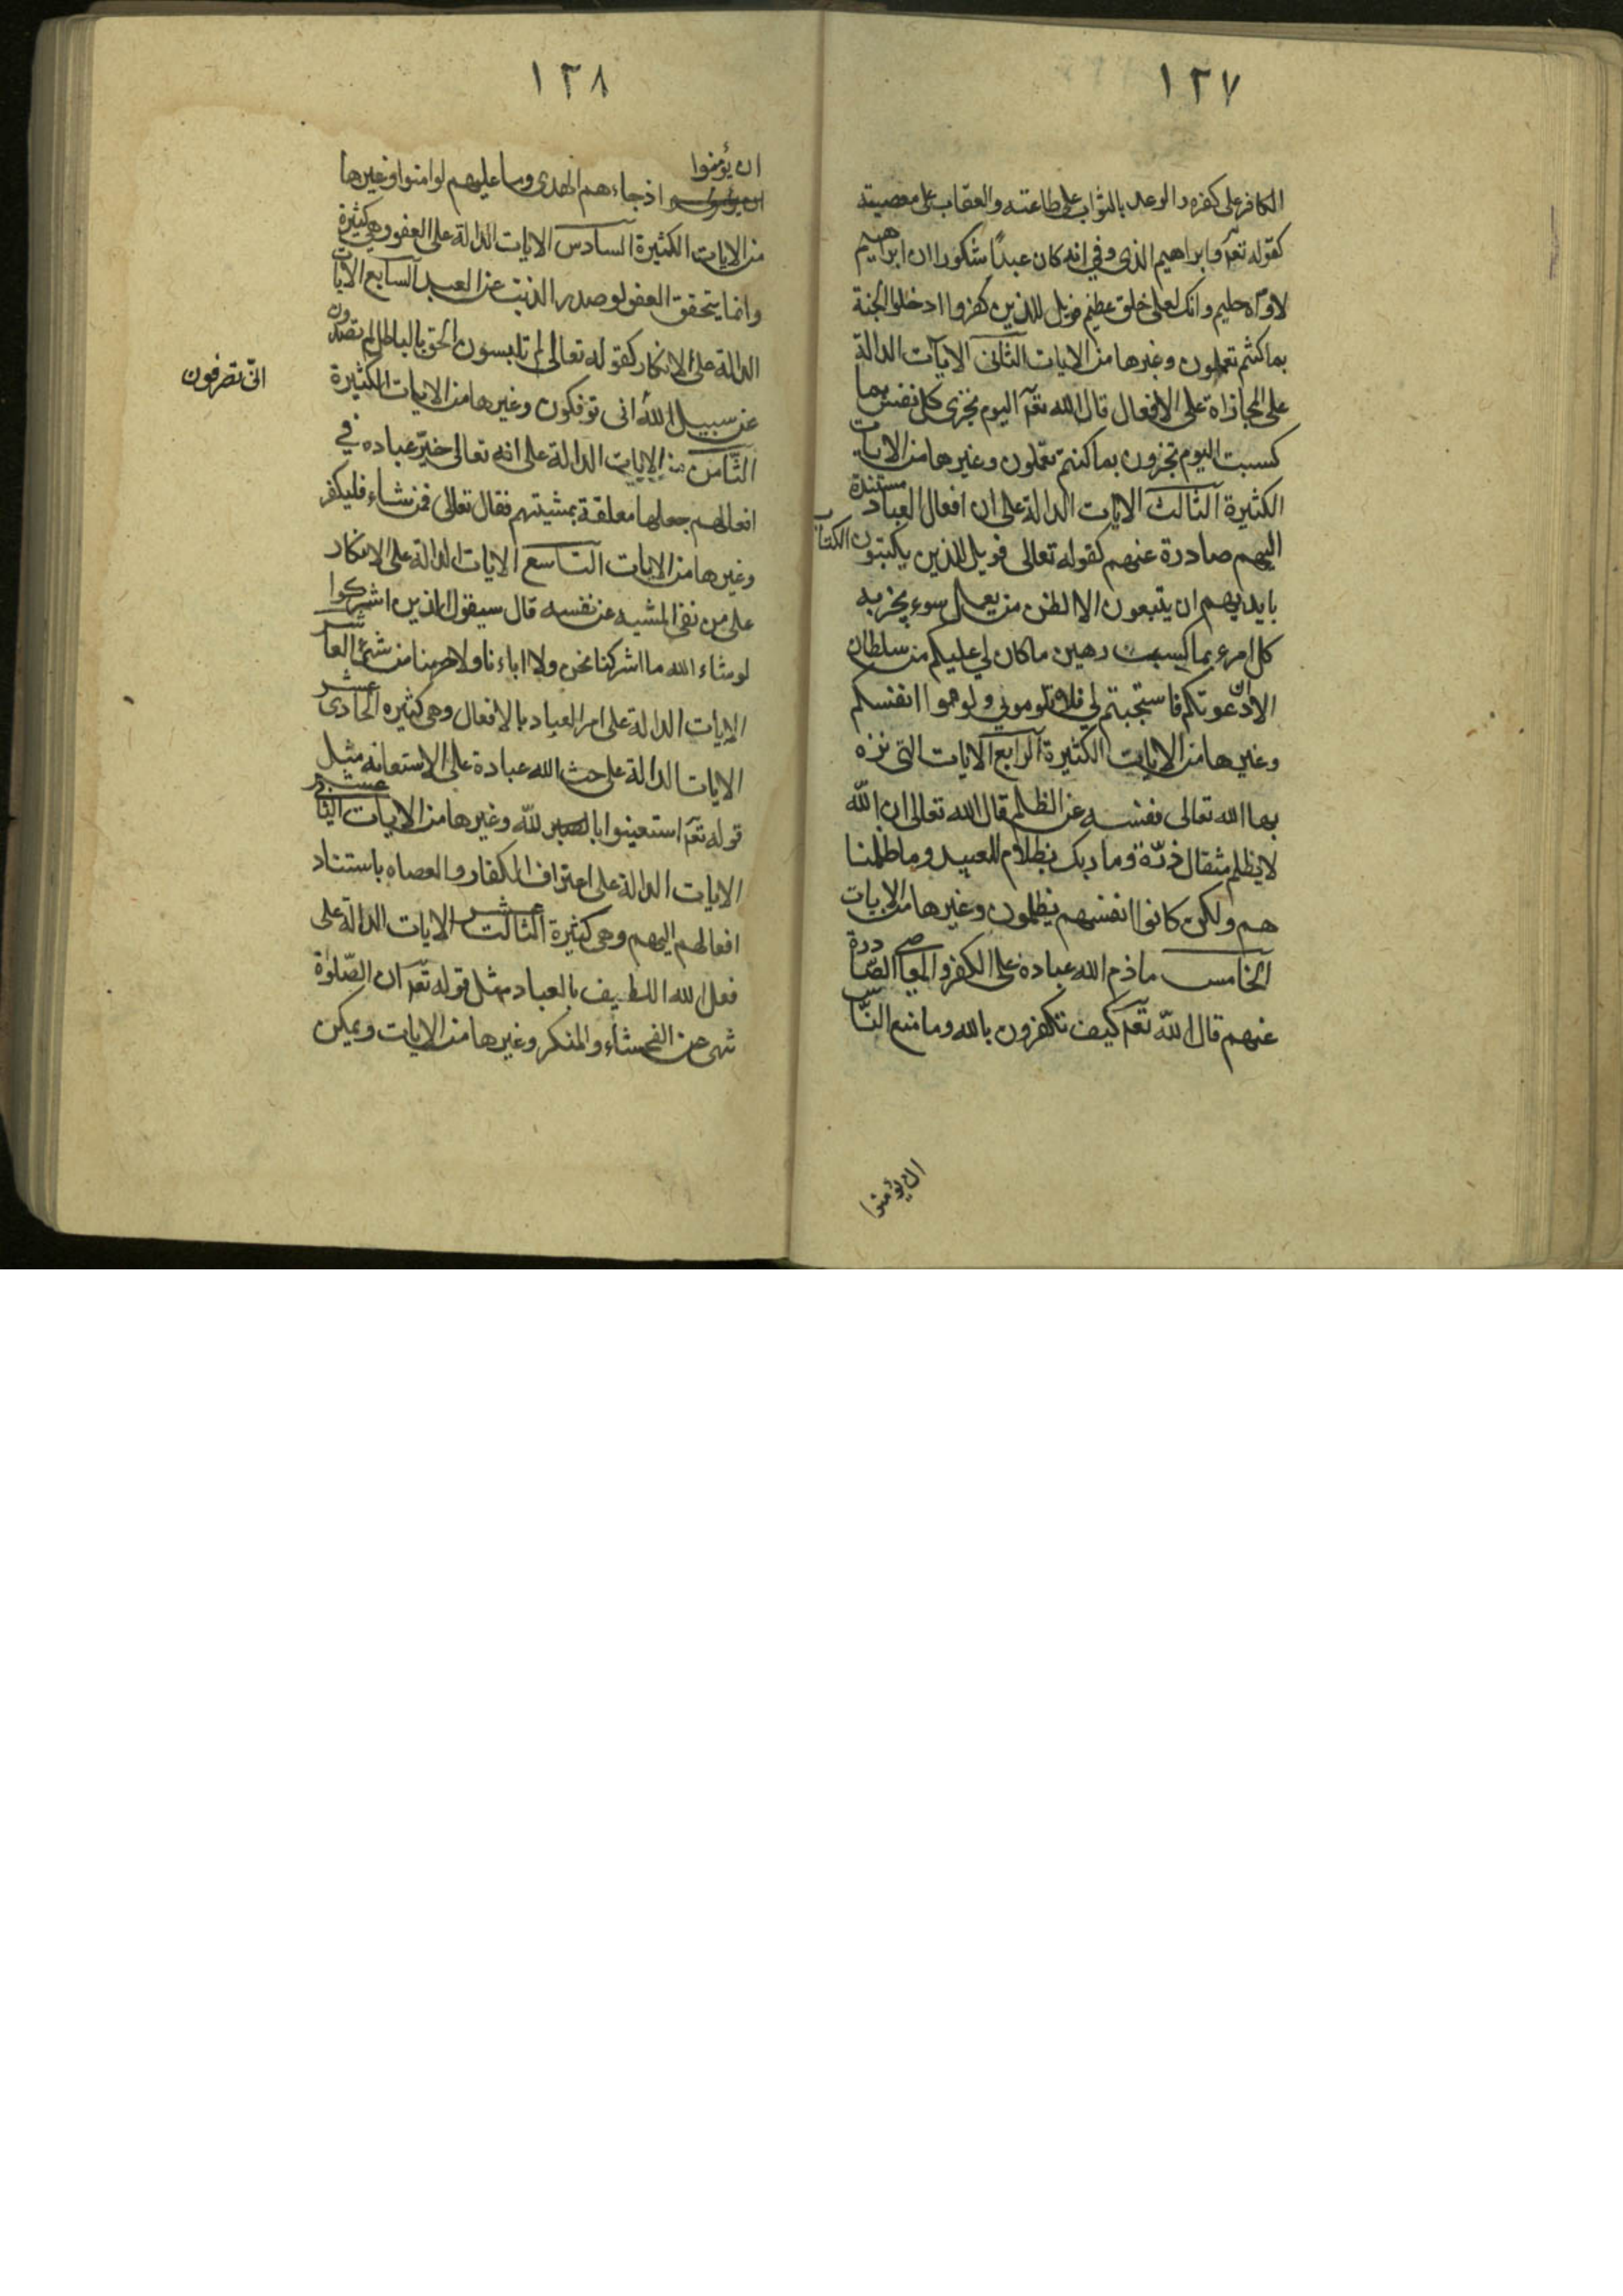 ١٢٧
الكافر على كفره والوعد بالثواب على طاعته والعقاب على معصيته
كقوله تعٓه وابراهيم الذى وفي انه كان عبدًا شكورا ان ابراهيم
لاوّاه حليم وانك لعلى خلق عظيم فويل للذين كفروا ادخلوا الجنة
بما كنتم تعملون وغيرها من الايات الثانى الايات الدالة
على المجازاة على الافعال قال الله تعٓه اليوم تجزى كل نفس بما
كسبت اليوم تجزون بما كنتم تعملون وغيرها من الايات
الكثيرة الثالث الايات الدالة على ان افعال العباد مستندة
اليهم صادرة عنهم كقوله تعالى فويل للذين يكتبون الكتاب
بايديهم ان يتبعون الا الظن من يعمل سوء يجز به
كل امرء بما كسبت رهين ما كان لي عليكم من سلطان
الا ان دعوتكم فاستجبتم لي فلا تلوموني ولوموا انفسكم
وغيرها من الايات الكثيرة الرابع الايات التى نزه
بها الله تعالى نفسه عن الظلم قال الله تعالى ان الله
لا يظلم مثقال ذرّة وما ربك بظلام للعبيد وما ظلمنا
هم ولكن كانوا انفسهم يظلمون وغيرها من الايات
الخامس ما ذم الله عباده على الكفر والمعاصى الصّادرة
عنهم قال اللّه تعٓه كيف تكفرون بالله وما منع النّاس
ان يؤمنوا
١٢٨
ان يؤمنوا
اذ جاءهم الهدى وما عليهم لو امنوا وغيرها
من الايات الكثيرة السادس الايات الدالة على العفو وهي كثيرة
وانما يتحقق العفو لو صدر الذنب عن العبد السابع الايات
الدالة على الانكار كقوله تعالى لم تلبسون الحق بالباطل لم تصدون
عن سبيل الله انى توفكون وغيرها من الايات الكثيرة
انّى تصرفون
الثّامن من الايات الدالة على انه تعالى خيّر عباده في
افعالهم جعلها معلقة بمشيتهم فقال تعالى فمن شاء فليكفر
وغيرها من الايات التاسع الايات الدالة على الانكار
على من نفى المشيه عن نفسه قال سيقول الذين اشركوا
لو شاء الله ما اشركنا نحن ولا اباءنا ولا حرمنا من شئ العاشر
الايات الدالة على امر العباد بالافعال وهى كثيره الحادى عشر
الايات الدالة على حث الله عباده على الاستعانه مثل
قوله تعٓه استعينوا بالصبر للّه وغيرها من الايات الثانى عشر
الايات الدالة على اعتراف الكفار والعصاه باستناد
افعالهم اليهم وهى كثيرة الثالث عشر الايات الدالة على
فعل الله اللطيف بالعباد مثل قوله تعٓه ان الصّلوة
تنهى عن الفحشاء والمنكر وغيرها من الايات ويمكن